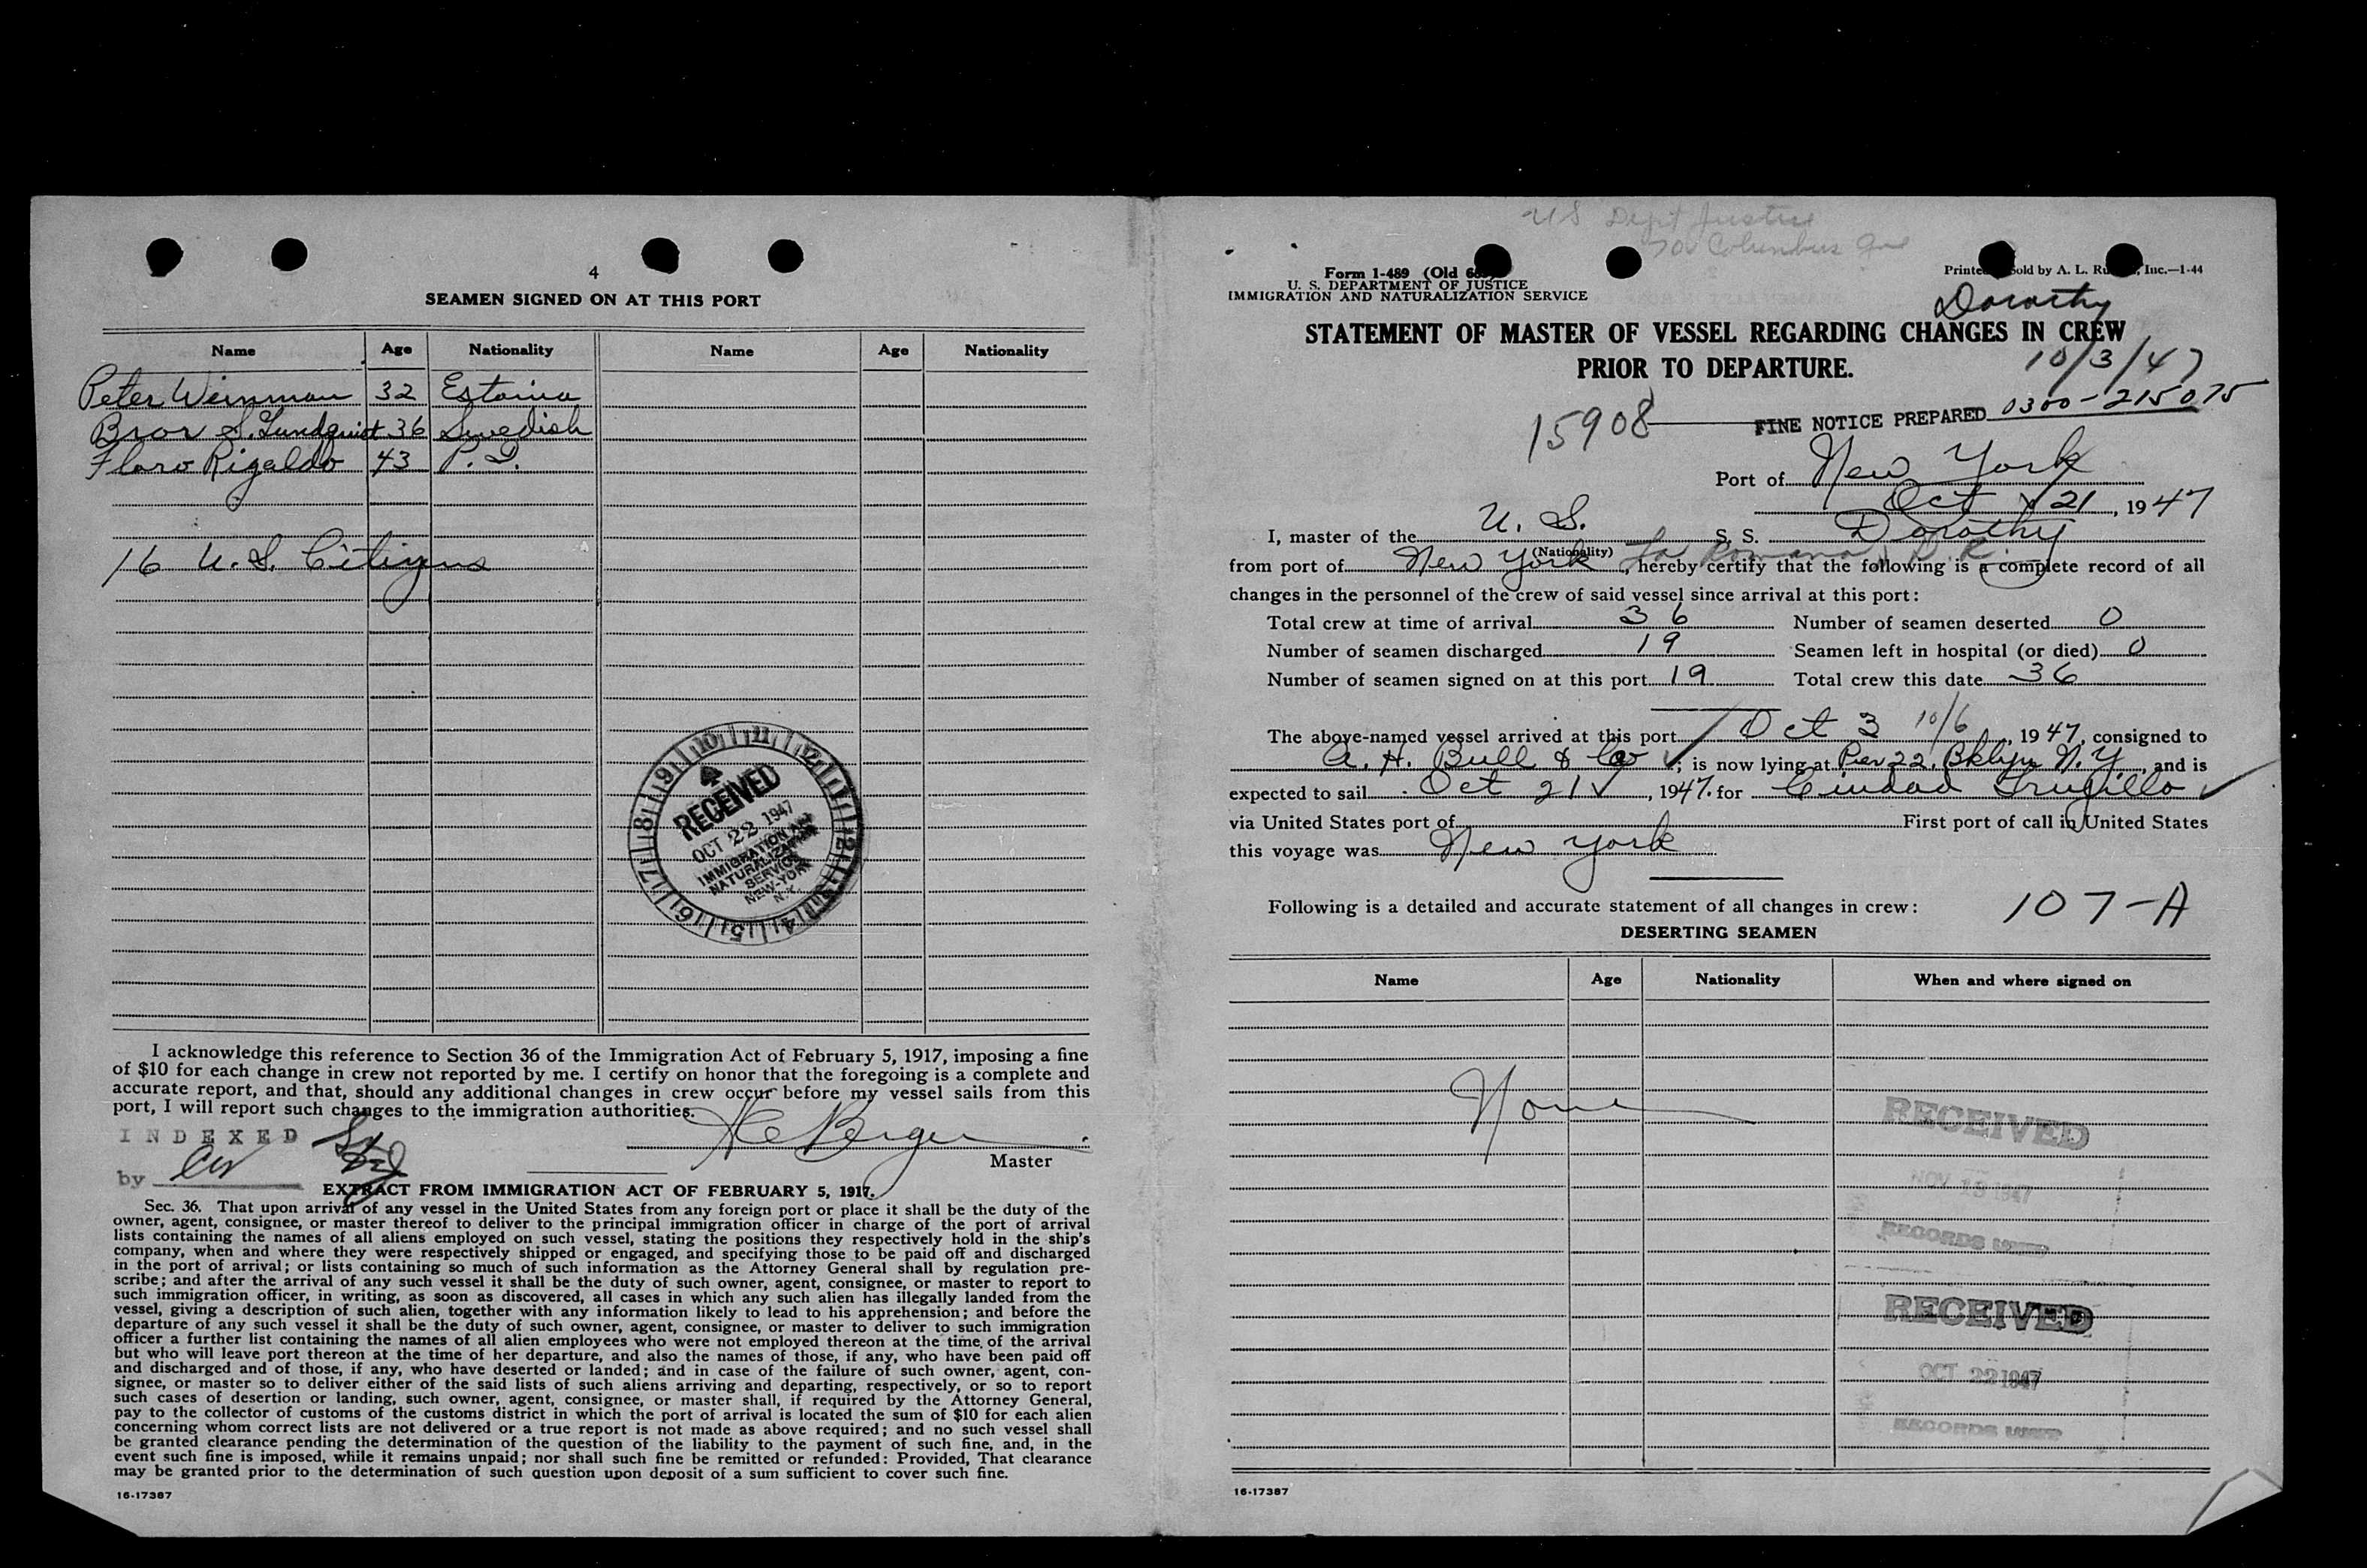 4
SEAMEN SIGNED ON AT THIS PORT
Name Age Nationality Name Age Nationality
Peter Weinman 32 Estonia
Bror S. Lundquist 36 Swedish
Floro Rigaldo 43 P. I.
16 U.S. Citizens
RECEIVED
OCT 22 1947
IMMIGRATION AND
NATURALIZATION
SERVICE
NEW-YORK
N.Y.
I acknowledge this reference to Section 36 of the Immigration Act of February 5, 1917, imposing a fine
of $10 for each change in crew not reported by me. I certify on honor that the foregoing is a complete and
accurate report, and that, should any additional changes in crew occur before my vessel sails from this
port, I will report such changes to the immigration authorities.
INDEXED
by
Berger
Master
EXTRACT FROM IMMIGRATION ACT OF FEBRUARY 5, 1917.
Sec. 36. That upon arrival of any vessel in the United States from any foreign port or place it shall be the duty of the
owner, agent, consignee, or master thereof to deliver to the principal immigration officer in charge of the port of arrival
lists containing the names of all aliens employed on such vessel, stating the positions they respectively hold in the ship's
company, when and where they were respectively shipped or engaged, and specifying those to be paid off and discharged
in the port of arrival; or lists containing so much of such information as the Attorney General shall by regulation pre-
scribe; and after the arrival of any such vessel it shall be the duty of such owner, agent, consignee, or master to report to
such immigration officer, in writing, as soon as discovered, all cases in which any such alien has illegally landed from the
vessel, giving a description of such alien, together with any information likely to lead to his apprehension; and before the
departure of any such vessel it shall be the duty of such owner, agent, consignee, or master to deliver to such immigration
officer a further list containing the names of all alien employees who were not employed thereon at the time of the arrival
but who will leave port thereon at the time of her departure, and also the names of those, if any, who have been paid off
and discharged and of those, if any, who have deserted or landed; and in case of the failure of such owner, agent, con-
signee, or master so to deliver either of the said lists of such aliens arriving and departing, respectively, or so to report
such cases of desertion or landing, such owner, agent, consignee, or master shall, if required by the Attorney General,
pay to the collector of customs of the customs district in which the port of arrival is located the sum of $10 for each alien
concerning whom correct lists are not delivered or a true report is not made as above required; and no such vessel shall
be granted clearance pending the determination of the question of the liability to the payment of such fine, and, in the
event such fine is imposed, while it remains unpaid; nor shall such fine be remitted or refunded: Provided, That clearance
may be granted prior to the determination of such question upon deposit of a sum sufficient to cover such fine.
16-17387
US Dept Justice
70 Columbus Ave
Form 1-489 (Old
U. S. DEPARTMENT OF JUSTICE
IMMIGRATION AND NATURALIZATION SERVICE
Sold by A. L. Inc.—1-44
Dorothy
STATEMENT OF MASTER OF VESSEL REGARDING CHANGES IN CREW
PRIOR TO DEPARTURE.
10/3/47
15908
FINE NOTICE PREPARED 0300-215075
Port of New York
Oct 21, 1947
I, master of the U. S. S. S. Dorothy
(Nationality)
La Romana, D.R.
from port of New York, hereby certify that the following is a complete record of all
changes in the personnel of the crew of said vessel since arrival at this port:
Total crew at time of arrival 36 Number of seamen deserted 0
Number of seamen discharged 19 Seamen left in hospital (or died) 0
Number of seamen signed on at this port 19 Total crew this date 36
The above-named vessel arrived at this port Oct 3 10/6, 1947, consigned to
A. H. Bull & Co; is now lying at Pier 22, Bklyn N.Y., and is
expected to sail Oct 21, 1947. for Ciudad Trujillo
via United States port of First port of call in United States
this voyage was New York
Following is a detailed and accurate statement of all changes in crew: 107-A
DESERTING SEAMEN
Name Age Nationality When and where signed on
None
RECEIVED
NOV 13 1947
RECORDS UNIT
RECEIVED
OCT 22 1947
RECORDS UNIT
16-17387